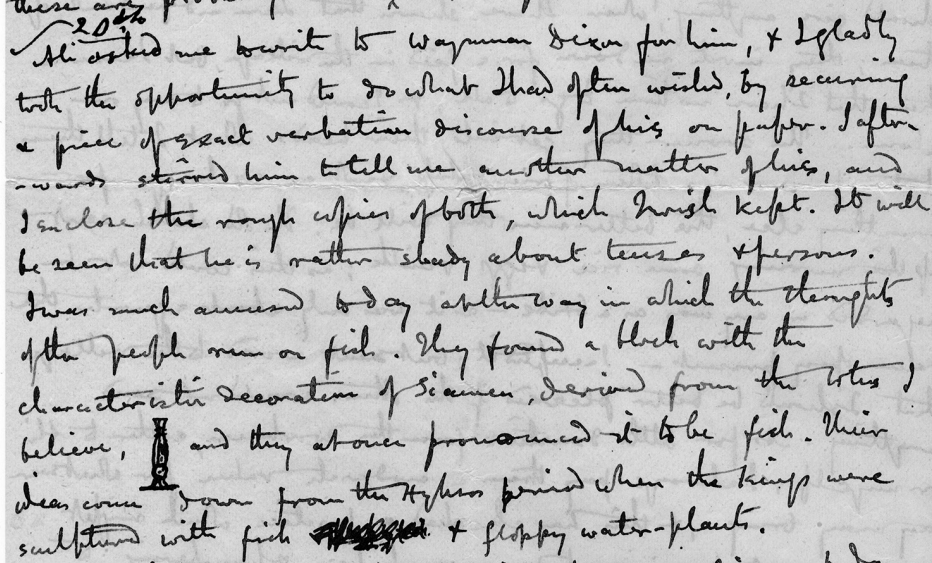 these are
20th
Ali asked me to write to Waynman Dixon for him, & I gladly
took the opportunity to do what I had often wished, by securing
a piece of exact verbatim discourse of his on paper. I after
-wards stirred him to tell me another matter of his, and
I enclose the rough copies of both, which I wish kept. It will
be seen that he is rather shady about tenses & persons.
I was much amused today at the way in which the thoughts
of the people run on fish. They found a block with the
characteristic decoration of Siamen, derived from the lotus I
believe, and they at once pronounced it to be fish. Their
ideas come down from the Hyksos period when the kings were
sculptured with fish & floppy water-plants.